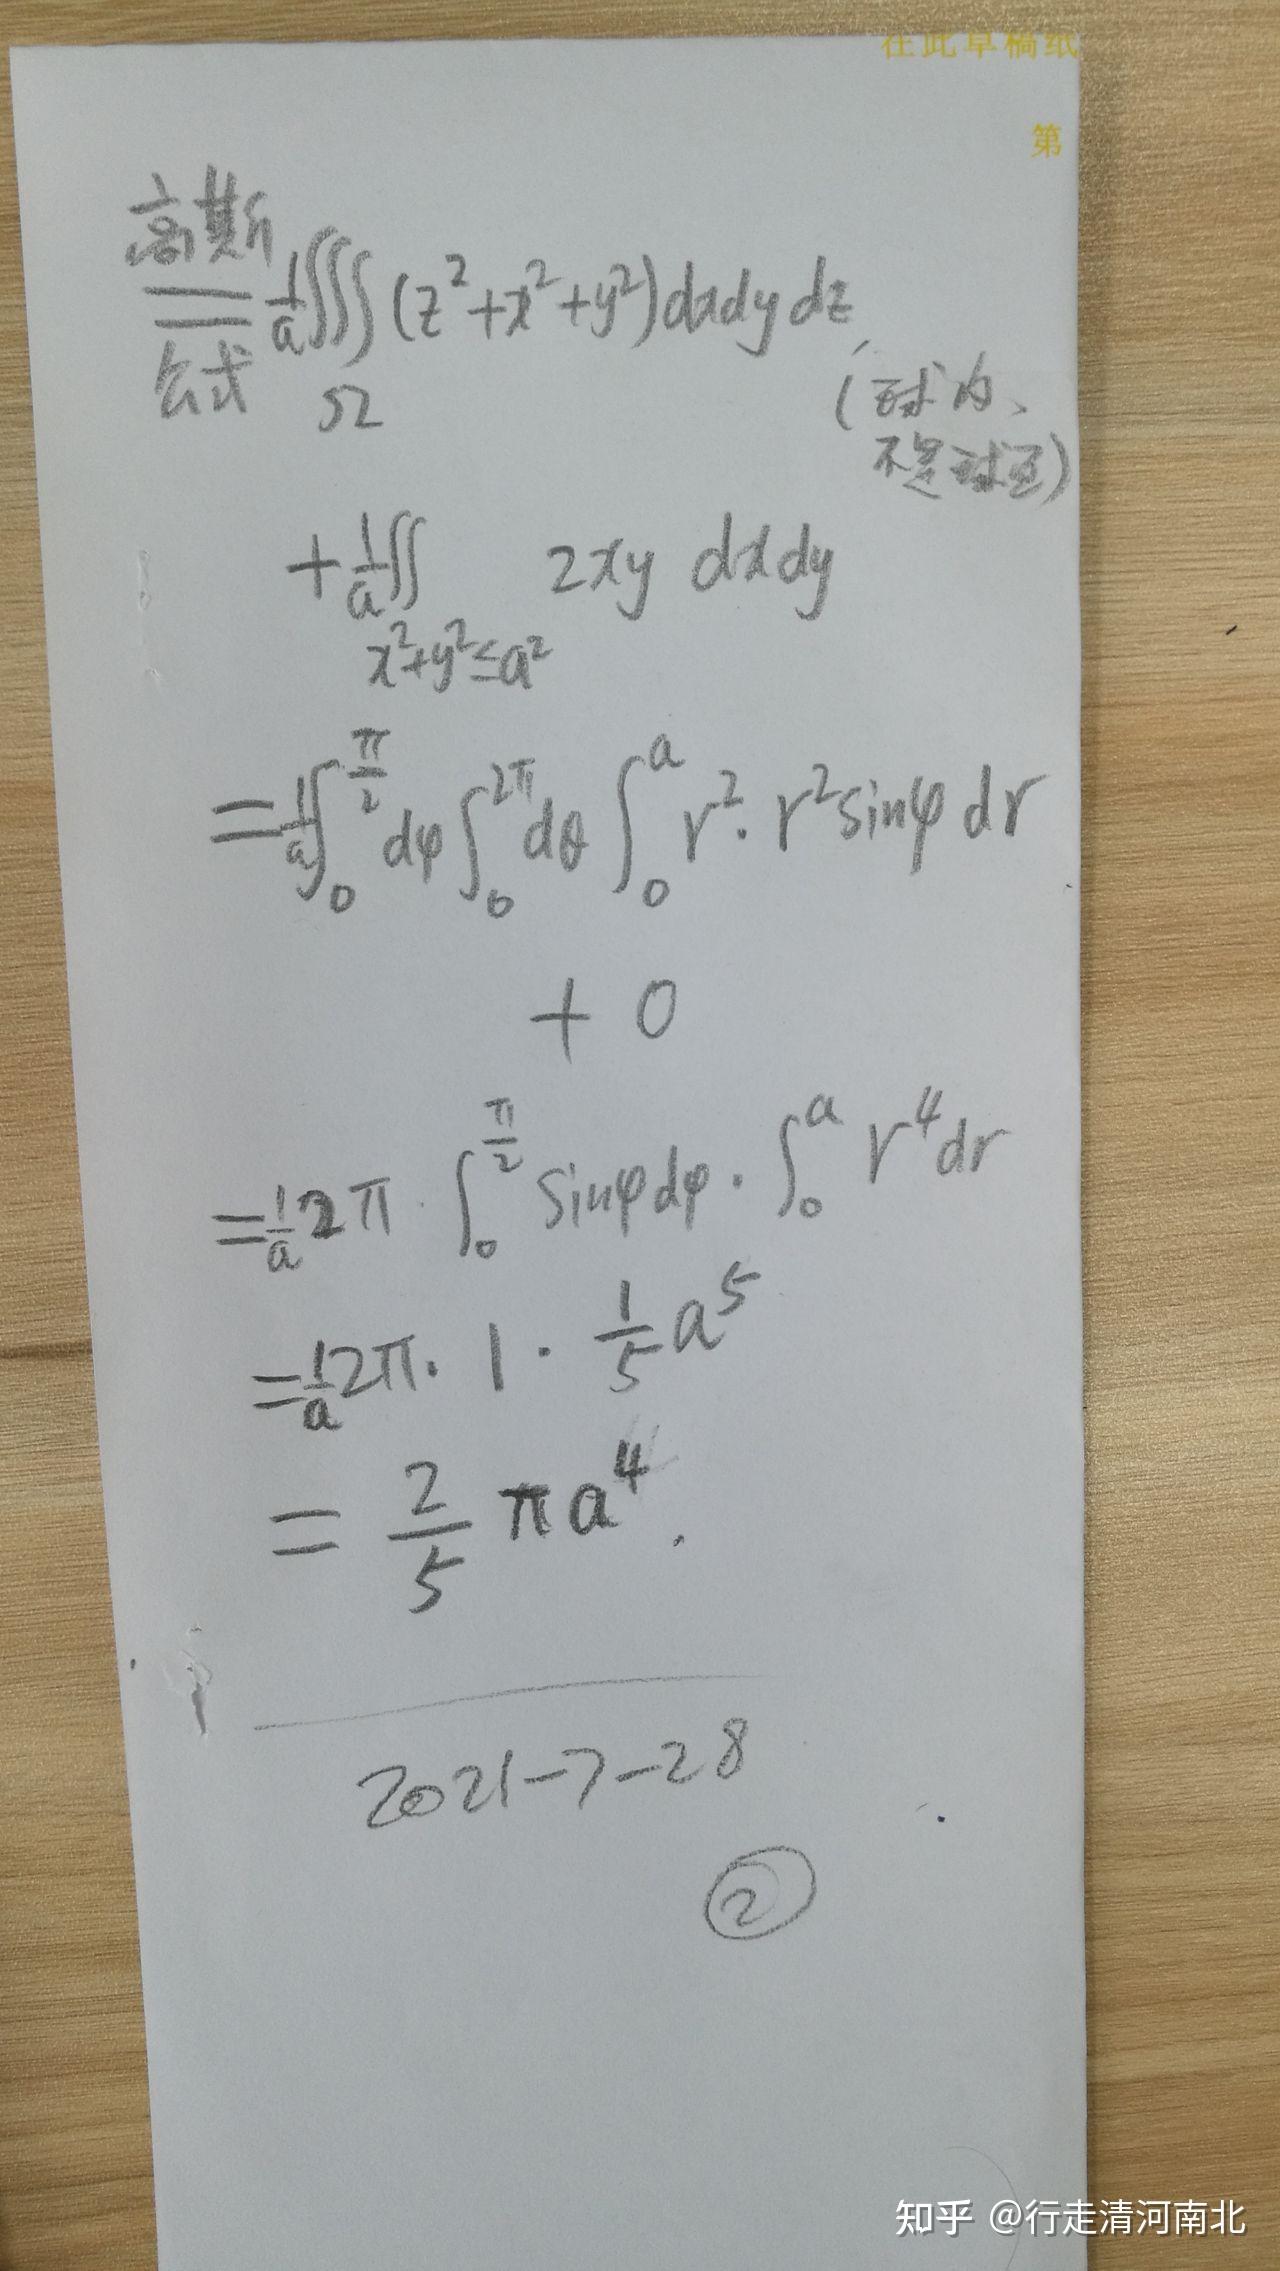 在此草稿纸
第
高斯
= 1/a ∭ (z²+x²+y²)dxdydz
公式 Ω
(球内、
不是球面)
+ 1/a ∬ 2xy dxdy
x²+y²≤a²
= 1/a ∫₀^{π/2} dφ ∫₀^{2π} dθ ∫₀^a r²·r² sinφ dr
+ 0
= 1/a 2π · ∫₀^{π/2} sinφdφ · ∫₀^a r⁴dr
= 1/a 2π · 1 · 1/5 a⁵
= 2/5 πa⁴.
2021-7-28
②
知乎 @行走清河南北